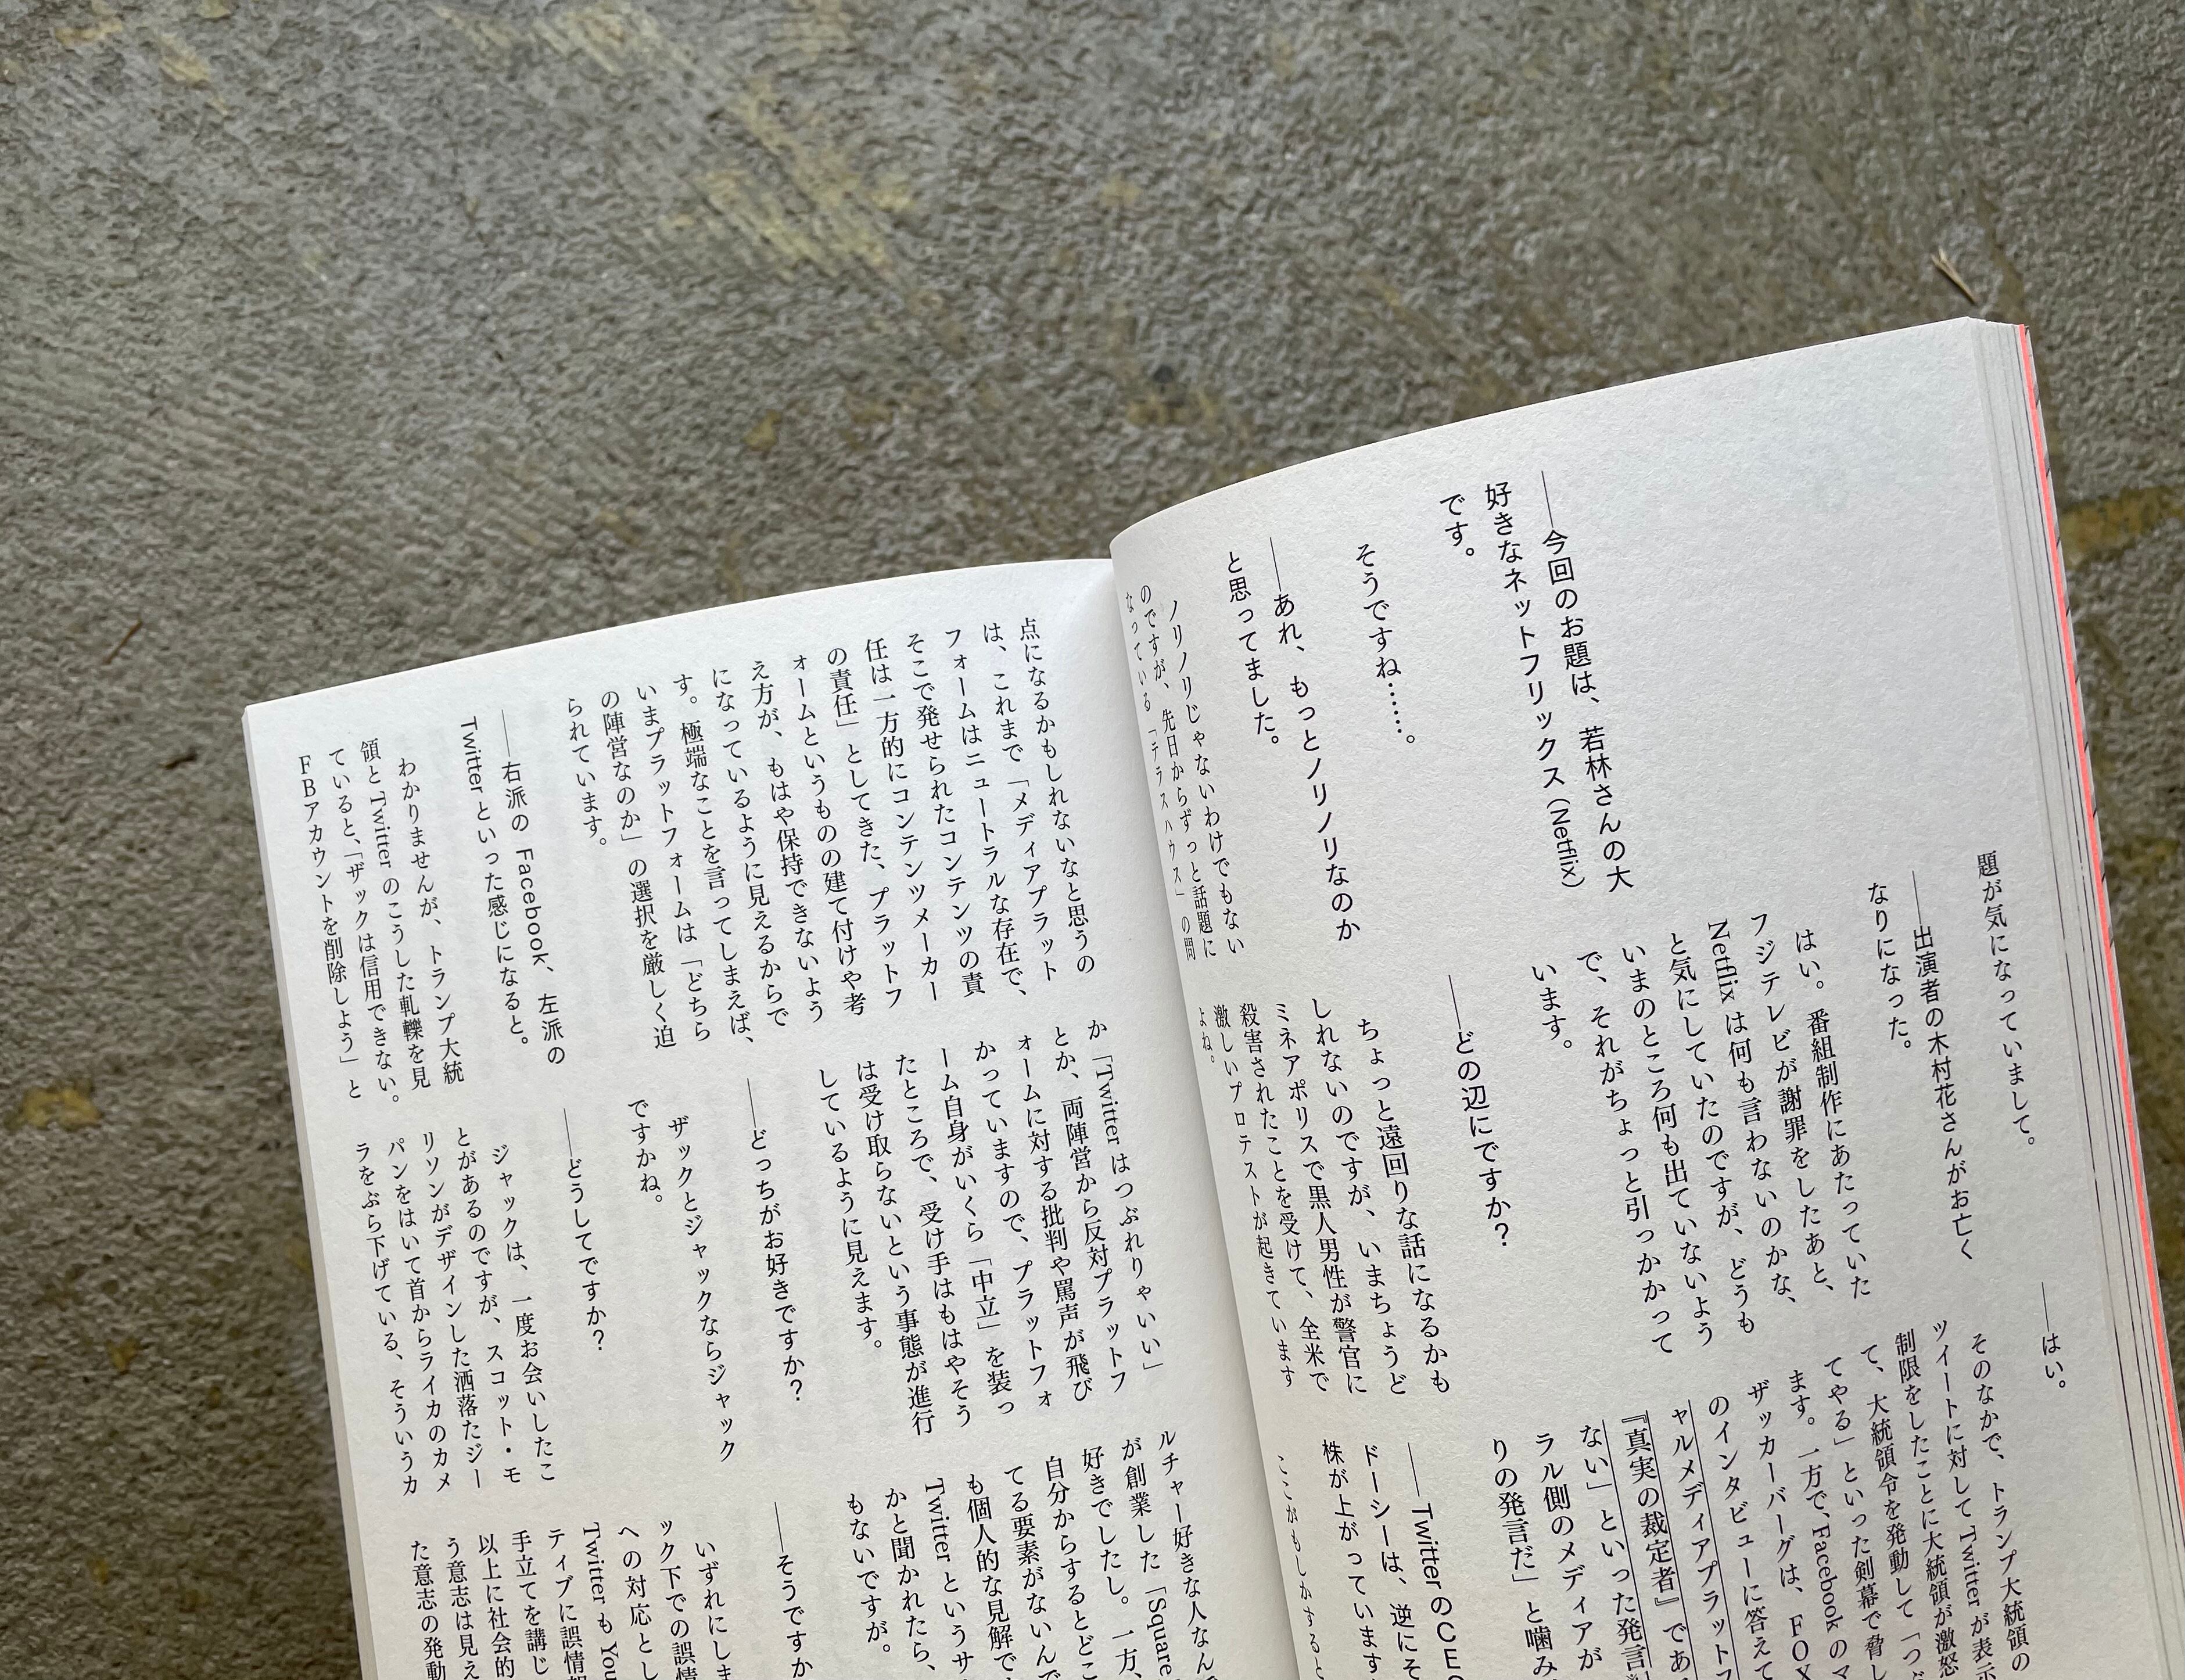 ――今回のお題は、若林さんの大
好きなネットフリックス（Netflix）
です。
そうですね……。
――あれ、もっとノリノリなのか
と思ってました。
ノリノリじゃないわけでもない
のですが、先日からずっと話題に
なっている「テラスハウス」の問
題が気になっていまして。
――出演者の木村花さんがお亡く
なりになった。
はい。番組制作にあたっていた
フジテレビが謝罪をしたあと、
Netflix は何も言わないのかな、
と気にしていたのですが、どうも
いまのところ何も出ていないよう
で、それがちょっと引っかかって
います。
――どの辺にですか？
ちょっと遠回りな話になるかも
しれないのですが、いまちょうど
ミネアポリスで黒人男性が警官に
殺害されたことを受けて、全米で
激しいプロテストが起きています
よね。
――はい。
そのなかで、トランプ大統領の
ツイートに対して Twitter が表示
制限をしたことに大統領が激怒
て、大統領令を発動して「つぶ
てやる」といった剣幕で脅し
ます。一方で、Facebook のマ
ザッカーバーグは、FOX
のインタビューに答えて
ャルメディアプラットフ
『真実の裁定者』であ
ない」といった発言
ラル側のメディアが
りの発言だ」と噛み
――Twitter のCEO
ドーシーは、逆にそ
株が上がっています
ここがもしかすると
点になるかもしれないなと思うの
は、これまで「メディアプラット
フォームはニュートラルな存在で、
そこで発せられたコンテンツの責
任は一方的にコンテンツメーカー
の責任」としてきた、プラットフ
ォームというものの建て付けや考
え方が、もはや保持できないよう
になっているように見えるからで
す。極端なことを言ってしまえば、
いまプラットフォームは「どちら
の陣営なのか」の選択を厳しく迫
られています。
――右派の Facebook、左派の
Twitter といった感じになると。
わかりませんが、トランプ大統
領と Twitter のこうした軋轢を見
ていると、「ザックは信用できない。
FBアカウントを削除しよう」と
か「Twitter はつぶれりゃいい」
とか、両陣営から反対プラットフ
ォームに対する批判や罵声が飛び
かっていますので、プラットフォ
ーム自身がいくら「中立」を装っ
たところで、受け手はもはやそう
は受け取らないという事態が進行
しているように見えます。
――どっちがお好きですか？
ザックとジャックならジャック
ですかね。
――どうしてですか？
ジャックは、一度お会いしたこ
とがあるのですが、スコット・モ
リソンがデザインした洒落たジー
パンをはいて首からライカのカメ
ラをぶら下げている、そういうカ
ルチャー好きな人なんで
が創業した「Square
好きでしたし。一方、
自分からするとどこ
てる要素がないんで
も個人的な見解で、
Twitter というサ
かと聞かれたら、
もないですが。
――そうですか
いずれにしま
ック下での誤情
への対応とし
Twitter も You
ティブに誤情報
手立てを講じ
以上に社会的
う意志は見え
た意志の発動